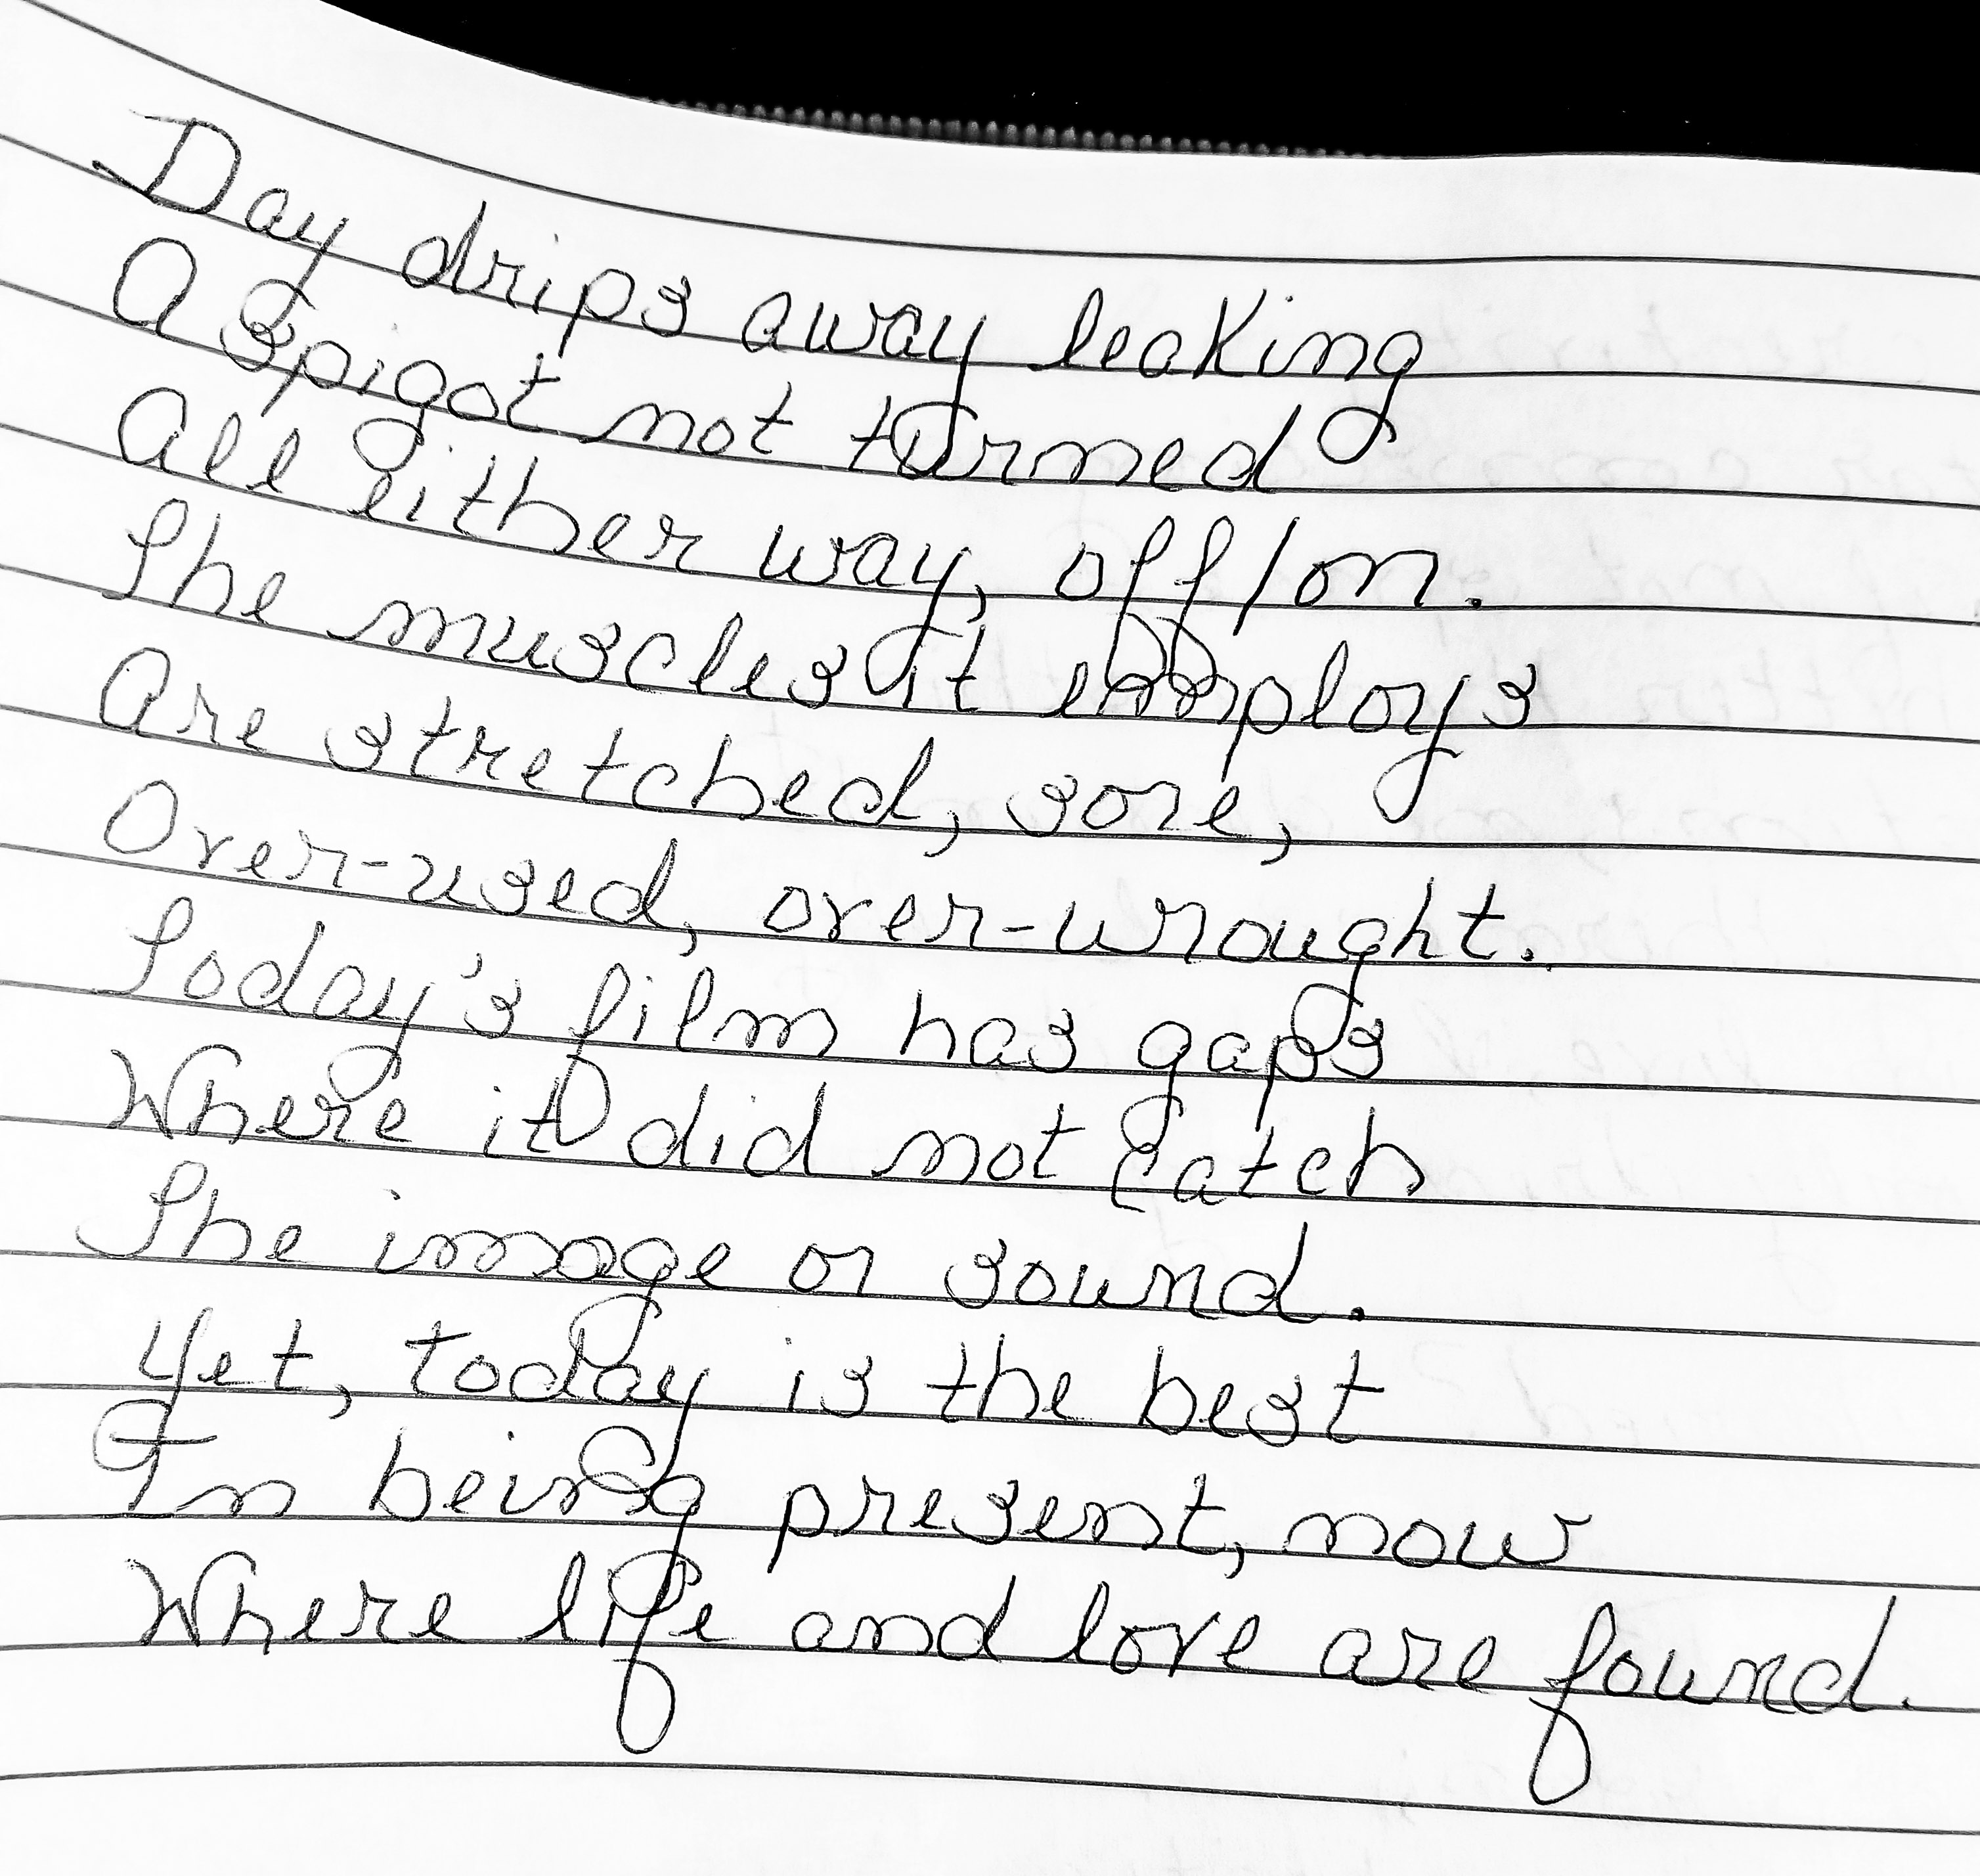 Day drips away leaking
A spigot not turned
All either way, off/on.
The muscles it employs
Are stretched, sore,
Over-used, over-wrought.
Today's film has gaps
Where it did not catch
The image or sound.
Yet, today is the best
In being present, now
Where life and love are found.